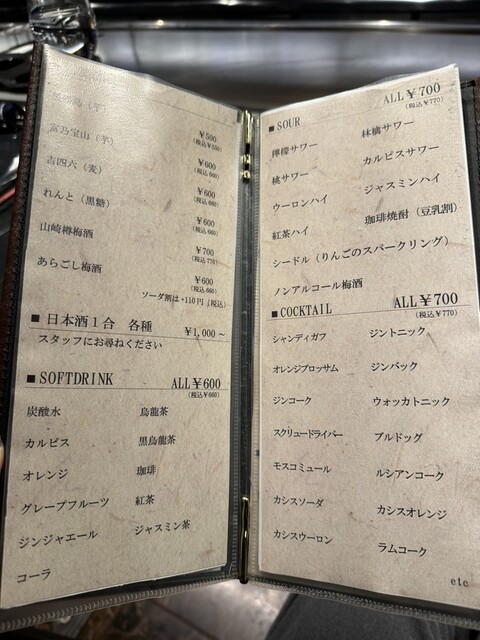 ¥500
(税込¥550)
富乃宝山（芋）
¥600
(税込660)
吉四六（麦）
¥600
(税込660)
れんと（黒糖）
¥600
(税込660)
山崎樽梅酒
¥700
(税込770)
あらごし梅酒
¥600
(税込660)
ソーダ割は+110円（税込）
■日本酒１合 各種 ¥1,000～
スタッフにお尋ねください
■SOFTDRINK ALL¥600
(税込¥660)
炭酸水 烏龍茶
カルピス 黒烏龍茶
オレンジ 珈琲
グレープフルーツ 紅茶
ジンジャエール ジャスミン茶
コーラ
■SOUR ALL¥700
(税込¥770)
檸檬サワー 林檎サワー
桃サワー カルピスサワー
ウーロンハイ ジャスミンハイ
紅茶ハイ 珈琲焼酎（豆乳割）
シードル（りんごのスパークリング）
ノンアルコール梅酒
■COCKTAIL ALL¥700
(税込¥770)
シャンディガフ ジントニック
オレンジブロッサム ジンバック
ジンコーク ウォッカトニック
スクリュードライバー ブルドッグ
モスコミュール ルシアンコーク
カシスソーダ カシスオレンジ
カシスウーロン ラムコーク
etc